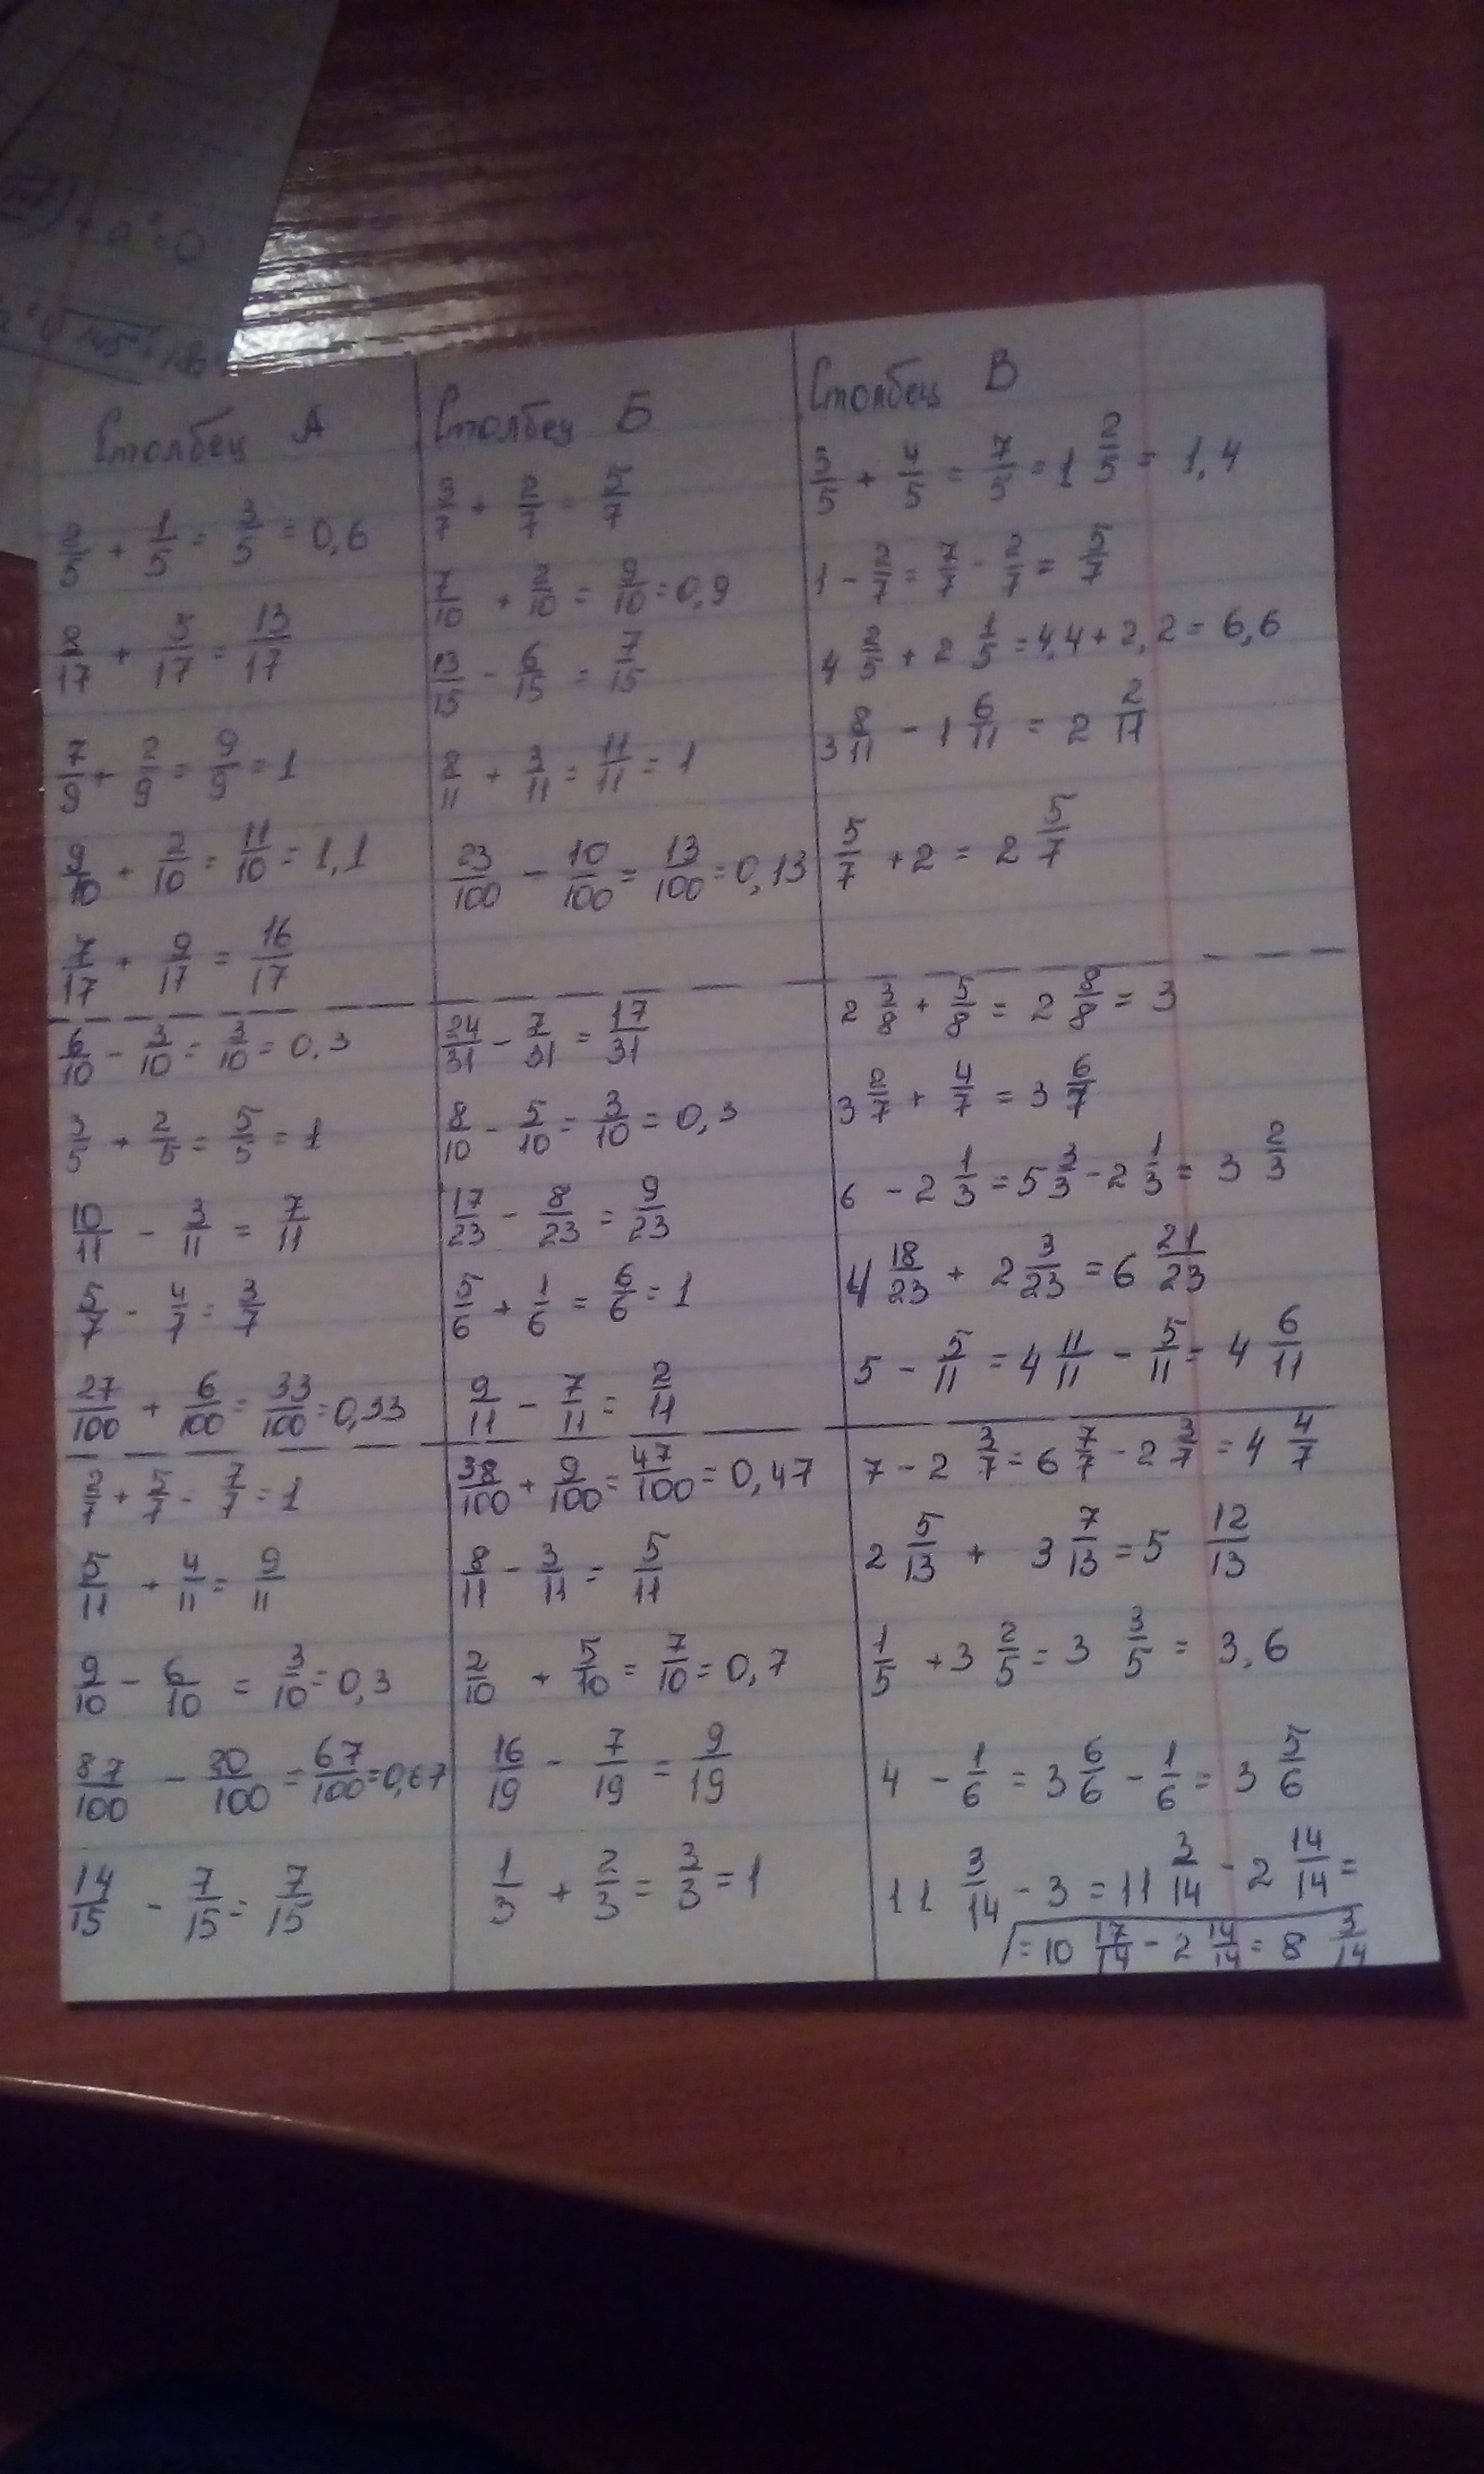 a² = 0
Столбец А
2/5 + 1/5 = 3/5 = 0,6
8/17 + 5/17 = 13/17
7/9 + 2/9 = 9/9 = 1
9/10 + 2/10 = 11/10 = 1,1
7/17 + 9/17 = 16/17
6/10 - 3/10 = 3/10 = 0,3
3/5 + 2/5 = 5/5 = 1
10/11 - 3/11 = 7/11
5/7 - 4/7 = 3/7
27/100 + 6/100 = 33/100 = 0,33
2/7 + 5/7 - 7/7 = 1
5/11 + 4/11 = 9/11
9/10 - 6/10 = 3/10 = 0,3
87/100 - 20/100 = 67/100 = 0,67
14/15 - 7/15 = 7/15
Столбец Б
3/7 + 2/7 = 5/7
7/10 + 2/10 = 9/10 = 0,9
13/15 - 6/15 = 7/15
8/11 + 3/11 = 11/11 = 1
23/100 - 10/100 = 13/100 = 0,13
24/31 - 7/31 = 17/31
8/10 - 5/10 = 3/10 = 0,3
17/23 - 8/23 = 9/23
5/6 + 1/6 = 6/6 = 1
9/11 - 7/11 = 2/11
38/100 + 9/100 = 47/100 = 0,47
8/11 - 3/11 = 5/11
2/10 + 5/10 = 7/10 = 0,7
16/19 - 7/19 = 9/19
1/3 + 2/3 = 3/3 = 1
Столбец В
3/5 + 4/5 = 7/5 = 1 2/5 = 1,4
1 - 2/7 = 7/7 - 2/7 = 5/7
4 2/5 + 2 1/5 = 4,4 + 2,2 = 6,6
3 8/11 - 1 6/11 = 2 2/11
5/7 + 2 = 2 5/7
2 3/8 + 5/8 = 2 8/8 = 3
3 2/7 + 4/7 = 3 6/7
6 - 2 1/3 = 5 3/3 - 2 1/3 = 3 2/3
4 18/23 + 2 3/23 = 6 21/23
5 - 5/11 = 4 11/11 - 5/11 = 4 6/11
7 - 2 3/7 = 6 7/7 - 2 3/7 = 4 4/7
2 5/13 + 3 7/13 = 5 12/13
1/5 + 3 2/5 = 3 3/5 = 3,6
4 - 1/6 = 3 6/6 - 1/6 = 3 5/6
11 3/14 - 3 = 11 3/14 - 2 14/14 =
= 10 17/14 - 2 14/14 = 8 3/14